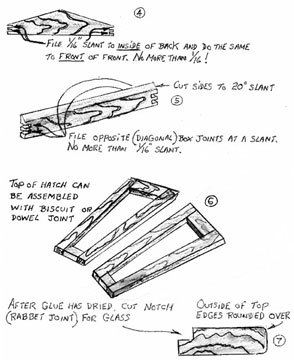 ④
FILE 1/16" SLANT TO INSIDE OF BACK AND DO THE SAME
TO FRONT OF FRONT. NO MORE THAN 1/16!
CUT SIDES TO 20° SLANT
⑤
FILE OPPOSITE (DIAGONAL) BOX JOINTS AT A SLANT.
NO MORE THAN 1/16" SLANT.
TOP OF HATCH CAN
BE ASSEMBLED
WITH BISCUIT OR
DOWEL JOINT
⑥
AFTER GLUE HAS DRIED, CUT NOTCH
(RABBET JOINT) FOR GLASS
OUTSIDE OF TOP
EDGES ROUNDED OVER
⑦